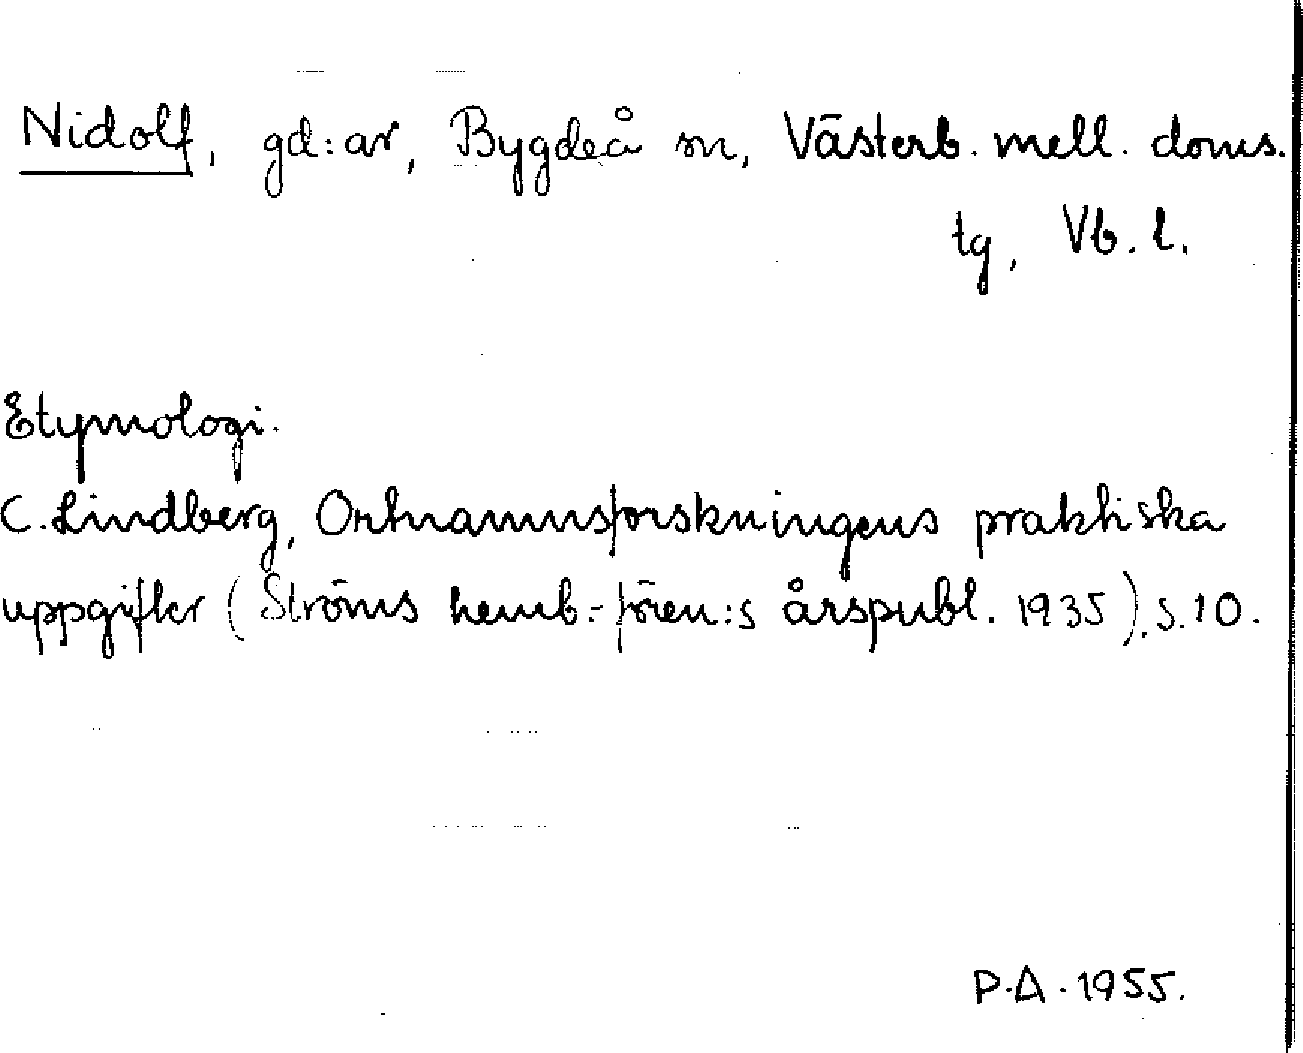 Nidolf, gd:ar, Bygdeå sn, Västerb. mell. doms.
tg, Vb. l.
Etymologi.
C. Lindberg, Ortnamnsforskningens praktiska
uppgifter (Ströms hemb.-fören:s årspubl. 1935), s. 10.
P.A. 1955.